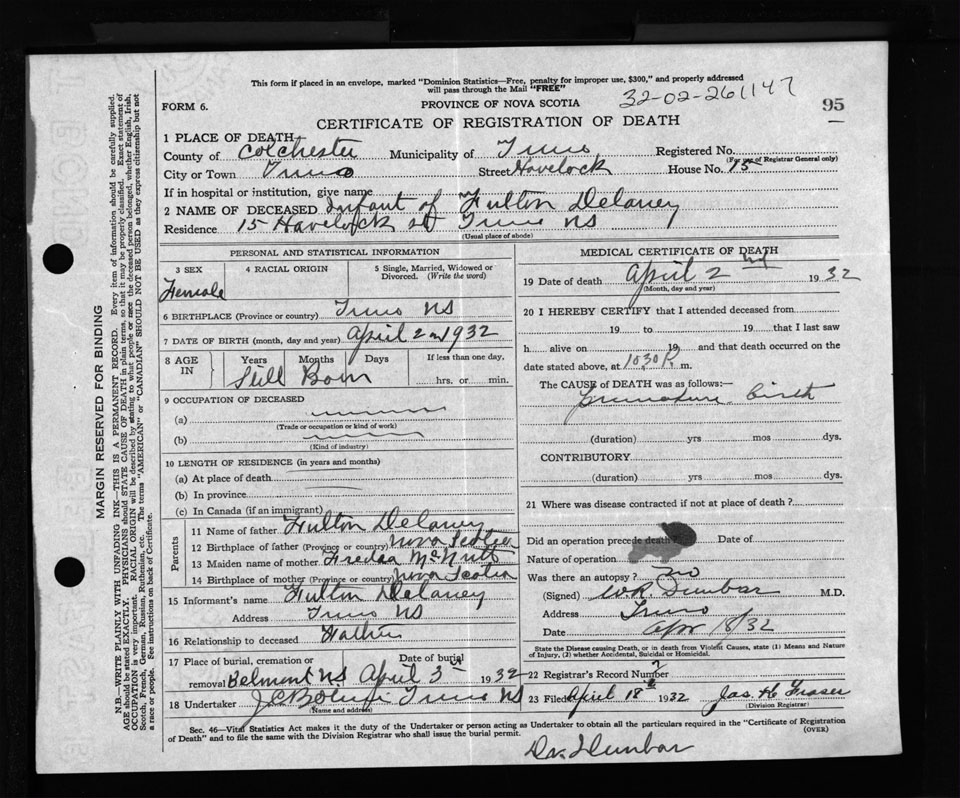 This form if placed in an envelope, marked "Dominion Statistics—Free, penalty for improper use, $300," and properly addressed
will pass through the Mail "FREE"
FORM 6. PROVINCE OF NOVA SCOTIA 32-02-261147 95
CERTIFICATE OF REGISTRATION OF DEATH
1 PLACE OF DEATH
County of Colchester Municipality of Truro Registered No.
(For use of Registrar General only)
City or Town Truro Street Havelock House No. 15
If in hospital or institution, give name
2 NAME OF DECEASED Infant of Fulton Delaney
Residence 15 Havelock st Truro NS
(Usual place of abode)
PERSONAL AND STATISTICAL INFORMATION
3 SEX 4 RACIAL ORIGIN 5 Single, Married, Widowed or
Divorced. (Write the word)
Female
6 BIRTHPLACE (Province or country) Truro NS
7 DATE OF BIRTH (month, day and year) April 2nd 1932
8 AGE IN Years Months Days If less than one day,
Still Born hrs. or min.
9 OCCUPATION OF DECEASED
(a)
(Trade or occupation or kind of work)
(b)
(Kind of industry)
10 LENGTH OF RESIDENCE (in years and months)
(a) At place of death
(b) In province
(c) In Canada (if an immigrant)
Parents
11 Name of father Fulton Delaney
12 Birthplace of father (Province or country) Nova Scotia
13 Maiden name of mother Freda McNutt
14 Birthplace of mother (Province or country) Nova Scotia
15 Informant's name Fulton Delaney
Address Truro NS
16 Relationship to deceased Father
17 Place of burial, cremation or Date of burial
removal Belmont NS April 3 1932
18 Undertaker Truro NS
(Name and address)
MEDICAL CERTIFICATE OF DEATH
19 Date of death April 2nd 1932
(Month, day and year)
20 I HEREBY CERTIFY that I attended deceased from
19 to 19 that I last saw
h alive on 19 and that death occurred on the
date stated above, at 10.30 P. m.
The CAUSE of DEATH was as follows:—
Premature birth
(duration) yrs mos dys.
CONTRIBUTORY
(duration) yrs mos dys.
21 Where was disease contracted if not at place of death?
Did an operation precede death Date of
Nature of operation
Was there an autopsy? No
(Signed) W.R. Dunbar M.D.
Address Truro
Date Apr 18/32
State the Disease causing Death, or in death from Violent Causes, state (1) Means and
Nature of Injury, (2) whether Accidental, Suicidal or Homicidal.
22 Registrar's Record Number
23 Filed April 18 1932 Jas. H. Fraser
(Division Registrar)
Sec. 46—Vital Statistics Act makes it the duty of the Undertaker or person acting as Undertaker to obtain all the particulars required in the "Certificate of Registration
of Death" and to file the same with the Division Registrar who shall issue the burial permit. (OVER)
Dr. Dunbar
MARGIN RESERVED FOR BINDING
N.B.—WRITE PLAINLY WITH UNFADING INK—THIS IS A PERMANENT RECORD. Every item of information should be carefully supplied.
AGE should be stated EXACTLY. PHYSICIANS should STATE CAUSE OF DEATH in plain terms, so that it may be properly classified. Exact statement of
OCCUPATION is very important. RACIAL ORIGIN will be described by stating to what people or race the deceased person belonged, whether English, Irish,
Scotch, French, German, Russian, Ruthenian, etc. The terms "AMERICAN" or "CANADIAN" SHOULD NOT BE USED as they express citizenship but not
a race or people. See instructions on back of Certificate.